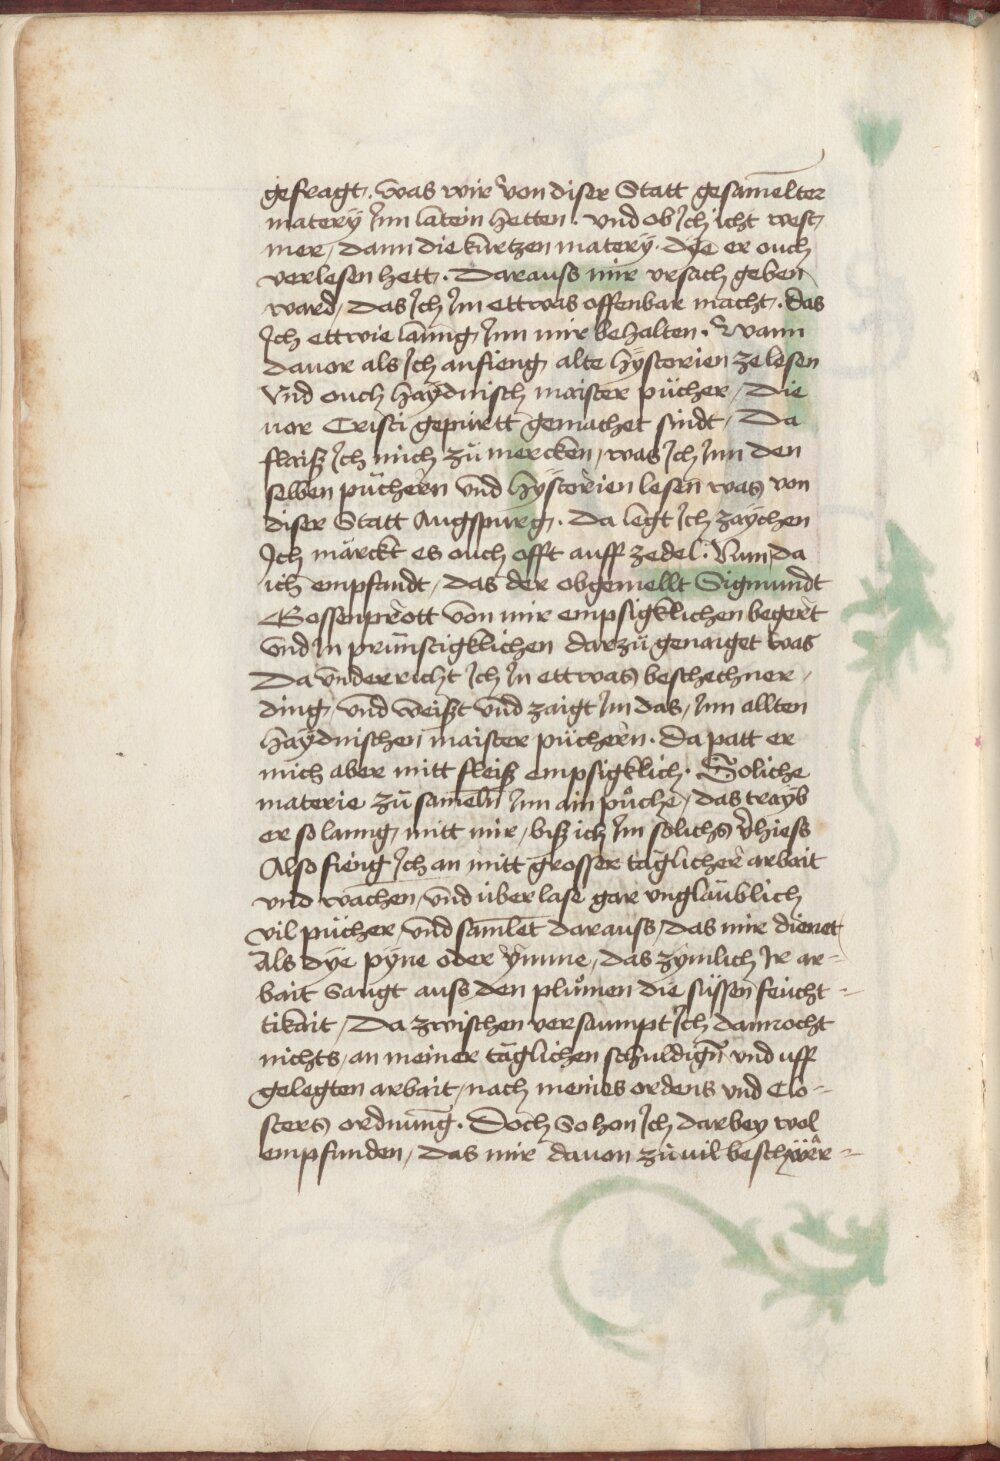 gefragt. was wir von diser Statt gesamelter
matery Jnn latein hetten. vnd ob Jch icht west
mer, dann die kurtzen matery. dye er ouch
verlesen hett. Darauss mir vrsach geben
ward, das Jch Jm ettwas offenbar macht. das
Jch ettwie lanng Jnn mir behalten. Wann
dauor als Jch anfieng alte hÿstorien ze lesen
Vnd ouch haÿdnisch maister pücher, Die
uor Cristi gepürtt gemachet sindt, Da
flaiß Jch mich zü mercken, was Jch Jnn den
selben püchern vnd hÿstorien lesen was von
diser Statt Augspurg. Da legt Jch zaychen
Jch märckt es ouch offt auff zedel. Nun da
ich empfandt, das der obgemellt Sigmundt
Gossenprott von mir empsigklichen begert
vnd Jn prünstigklichen darzü genaiget was
Da vnderricht Jch Jn ettwas beschechner,
ding, vnd weißt vnd zaigt Jm das, Jnn allten
haÿdnischen maister püchern. Da patt er
mich aber mitt fleiß empsigklich. Soliche
materie zü sameln Jnn ain püche, das trayb
er so lanng mitt mir, biß ich Jm solichs v̄hiess
Also fieng Jch an mitt grosser täglicher arbait
vnd wachen, vnd überlase gar vnglaüblich
vil pücher, vnd samlet darauss, das mir dienet
als dye pyne oder ymme, das zymlich Jr ar=
bait saugt auss den plůmen die süssen feücht=
tikait, Da zwischen versaumpt Jch dannocht
nichts, an meiner täglichen schuldign̄ vnd uff
gelegten arbait, nach meines ordens vnd Clo=
sters ordnung. Doch so hon Jch darbey wol
empfunden, das mir dauon zü uil beschwär=